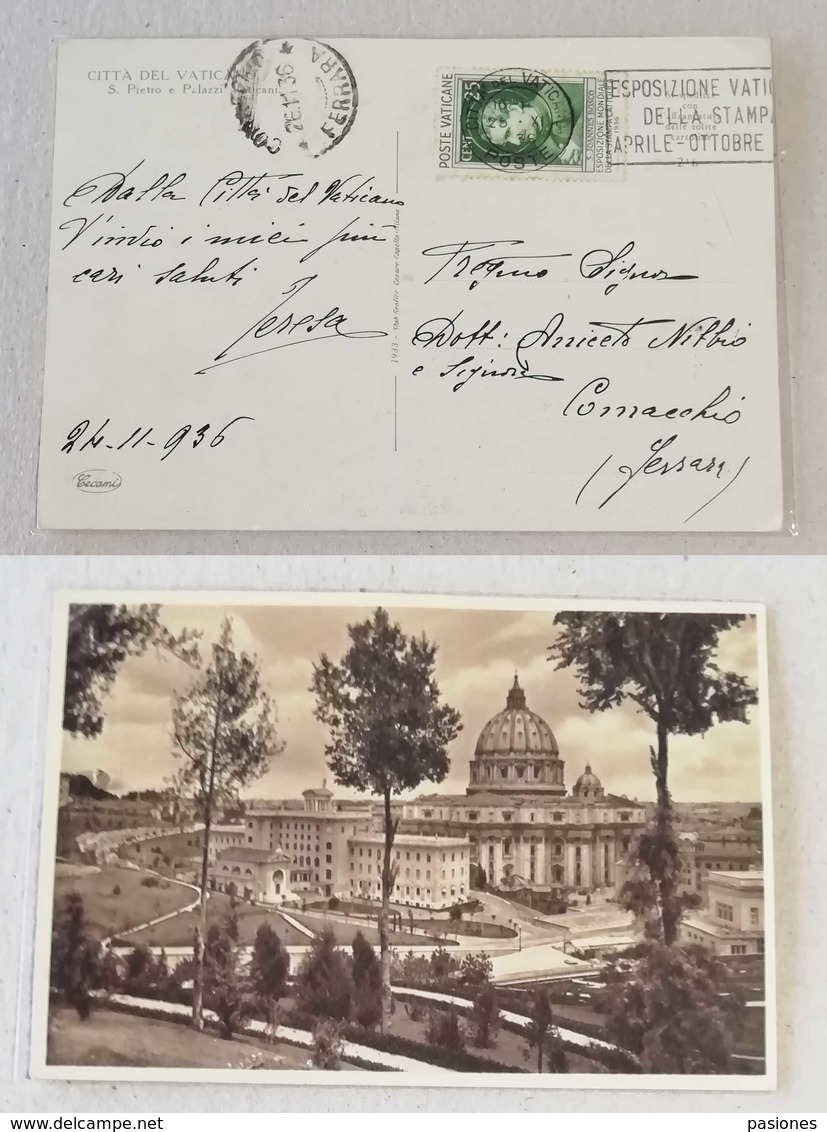 CITTÀ DEL VATICA
S. Pietro e Palazzi Vaticani
COMACCHIO
26.11.36
FERRARA
POSTE VATICANE
CENT. 25
S. JOANNES BOSCO
ESPOSIZIONE MONDIALE
DELLA STAMPA CATTOLICA 1936
CITTÀ DEL VATICANO
POSTE
ESPOSIZIONE VATIC
DELLA STAMPA
APRILE-OTTOBRE
con
delle solite
Dalla Città del Vaticano
V'invio i miei più
cari saluti
Teresa
24-11-936
Cecami
1933 - Stab Grafico Cesare Capello - Milano
Pregmo Signor
Dott: Aniceto Nibbio
e Signora
Comacchio
(Ferrara)
pasiones